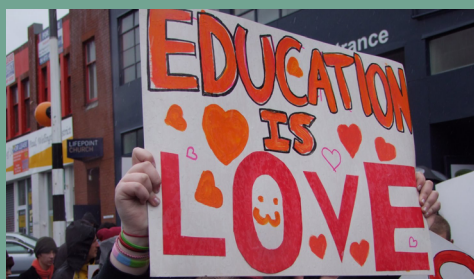 EDUCATION
IS
LOVE
LIFEPOINT
CHURCH